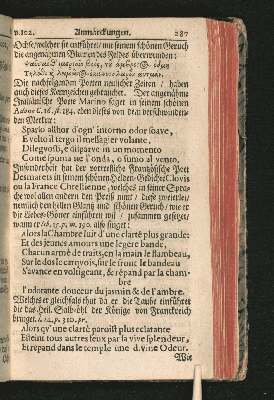 v.102. Anmärckungen. 287
Ochse/welcher sie entführet/ mit seinem schönen Geruch
die angenämen Blumen des Feldes überwunden:
Die nachfolgenden Poeten neulicher Zeiten / haben
auch dieses Kennzeichen gebrauchet. Der angenäme
Italiänische Poete Marino saget in seinem schönen
Adone C. 16. p. 184. eben dieses von dem verschwinden-
den Mercur:
Sparso allhor d'ogn' intorno odor soave,
E velto il tergo il messagier volante,
Dileguossi, e disparve in un momento
Come spuma ne l'onda, o fumo al vento.
Insonderheit hat der vortreffliche Frantzösische Poet
Desmarets in seinem schönen Helden-Gedichte Clovis
ou la France Chrestienne, welches in seiner Spra-
che vol allen andern den Preiß nimt/ diese zweiterley
nemlich den hellen Glantz und schönen Geruch/ wie er
die Liebes-Göttin einführen wil / zusammen gesetzet/
wann er lib. 15. p. m. 290. also singet:
Alors la Chambre luit d'une clarté plus grande:
Et des jeunes Amours une legere bande,
Chacun armé de traits, en la main le flambeau,
Sur le dos le carquois, sur le front le bandeau
S'avance en voltigeant, & répand par la cham-
bre
l'odorante douceur du jasmin & de l'ambre.
Welches er gleichsfals thut da er die Taube einführet
die das Heil. Salb-öhl der Könige von Franckreich
bringet. l. 24. p. 310. pr.
Alors qu' une clarté paroist plus éclatante
Esteint tous autres feux par la vive splendeur,
Et répand dans le temple une divine Odeur.
Wie